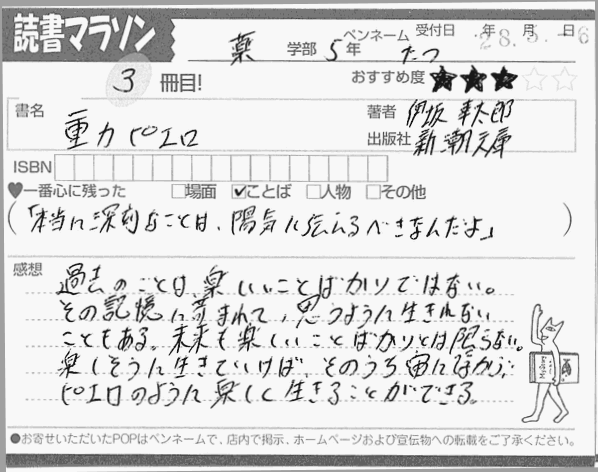 読書マラソン
薬 学部 5年 ペンネーム たつ 受付日 年 月 日 28.5.-6
3 冊目! おすすめ度 ★★★☆☆
書名 重力ピエロ
著者 伊坂 幸太郎
出版社 新潮文庫
ISBN
♥一番心に残った □場面 ☑ことば □人物 □その他
(「本当に深刻なことは、陽気に伝えるべきなんだよ」)
感想
過去のことは、楽しいことばかりではない。
その記憶に苛まれて、思うように生きれない
こともある。未来も楽しいことばかりとは限らない。
楽しそうに生きていけば、そのうち宙に浮かぶ
ピエロのように楽しく生きることができる。
●お寄せいただいたPOPはペンネームで、店内で掲示、ホームページおよび宣伝物への転載をご了承ください。